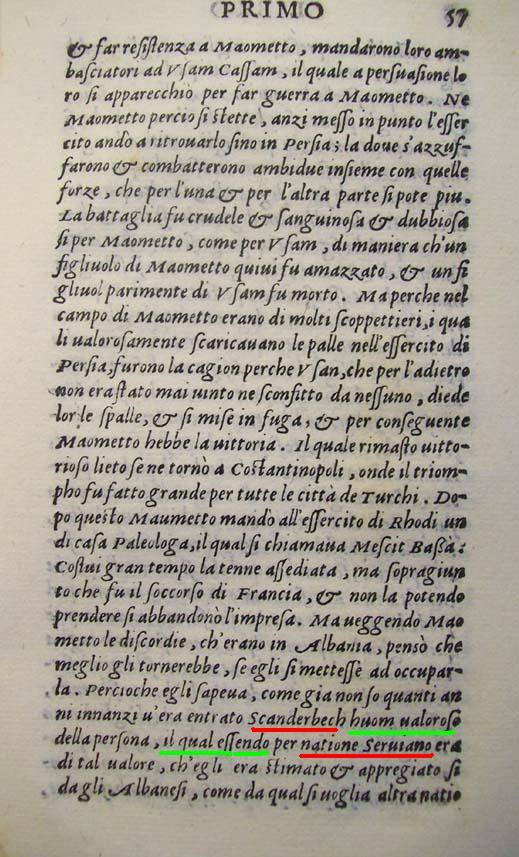 PRIMO 57
& far resistenza a Maometto, mandarono loro am-
basciatori ad Vsam Cassam, il quale a persuasione lo
ro si apparecchio per far guerra a Maometto. Ne
Maometto percio si stette, anzi messo in punto l'esser
cito andò a ritrouarlo sino in Persia; la doue s'azzuf-
farono & combatterono ambidue insieme con quelle
forze, che per l'una & per l'altra parte si pote piu.
La battaglia fu crudele & sanguinosa & dubbiosa
si per Maometto, come per Vsam, di maniera ch'un
figliuolo di Maometto quiui fu amazzato, & un fi
gliuol parimente di Vsam fu morto. Ma perche nel
campo di Maometto erano di molti scoppettieri, i qua
li ualorosamente scaricauano le palle nell'essercito di
Persia, furono la cagion perche Vsan, che per l'adietro
non era stato mai uinto ne sconfitto da nessuno, diede
lor le spalle, & si mise in fuga, & per conseguente
Maometto hebbe la uittoria. Il quale rimasto uitto-
rioso lieto se ne tornò a Costantinopoli, onde il triom-
pho fu fatto grande per tutte le città de Turchi. Do-
po questo Maumetto mandò all'essercito di Rhodi un
di casa Paleologa, il qual si chiamaua Mescit Bassà:
Costui gran tempo la tenne assediata, ma sopragiun
to che fu il soccorso di Francia, & non la potendo
prendere si abbandonò l'impresa. Ma ueggendo Mao
metto le discordie, ch'erano in Albania, pensò che
meglio gli tornerebbe, se egli si mettesse ad occupar-
la. Percioche egli sapeua, come gia non so quanti an
ni innanzi u'era entrato Scanderbech huom ualoroso
della persona, il qual essendo per natione Seruiano era
di tal ualore, ch'egli era stimato & appregiato si
da gli Albanesi, come da qual si uoglia altra natio